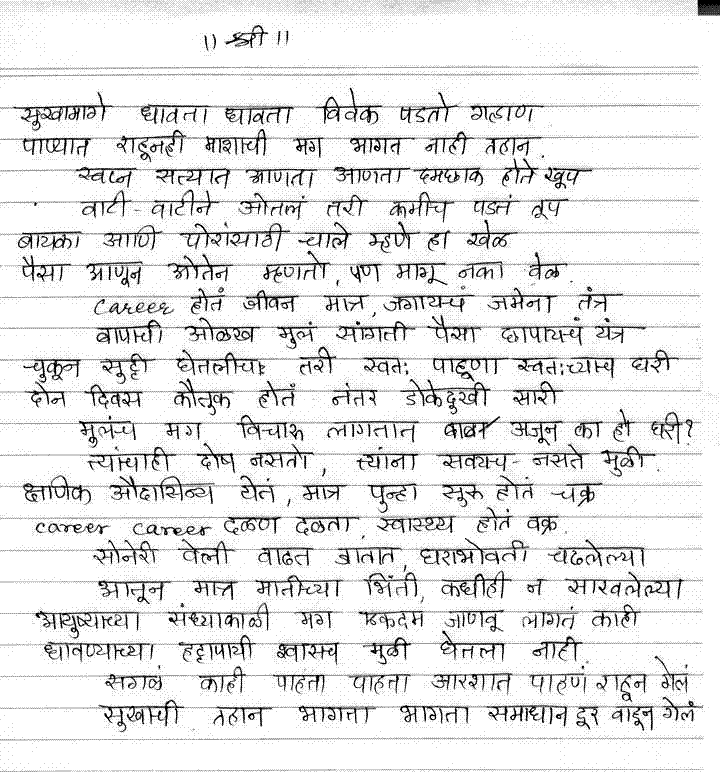 ॥ श्री ॥
सुखामागे धावता धावता विवेक पडतो गहाण
पाण्यात राहूनही माशाची मग भागत नाही तहान.
स्वप्न सत्यात आणता आणता दमछाक होते खूप
वाटी-वाटीने ओतलं तरी कमीच पडतं तूप
बायका आणि पोरांसाठी चाले म्हणे हा खेळ
पैसा आणून ओतेन म्हणतो, पण मागू नका वेळ.
career होतं जीवन मात्र, जगायचं जमेना तंत्र
बापाची ओळख मुलं सांगती पैसा छापायचं यंत्र
चुकून सुट्टी घेतलीच तरी स्वतः पाहूणा स्वतःच्याच घरी
दोन दिवस कौतुक होतं नंतर डोकेदुखी सारी
मुलंच मग विचारू लागतात बाबा अजून का हो घरी?
त्यांचाही दोष नसतो, त्यांना सवयच नसते मुळी.
क्षणिक औदासिन्य येतं, मात्र पुन्हा सुरू होतं चक्र
career career दळण दळता, स्वास्थ्य होतं वक्र.
सोनेरी वेली वाढत जातात, घराभोवती चढलेल्या
आतून मात्र मातीच्या भिंती, कधीही न सारवलेल्या
आयुष्याच्या संध्याकाळी मग एकदम जाणवू लागतं काही
धावण्याच्या हट्टापायी श्वासच मुळी घेतला नाही.
सगळं काही पाहता पाहता आरशात पाहणं राहून गेलं
सुखाची तहान भागता भागता समाधान दूर वाहून गेलं